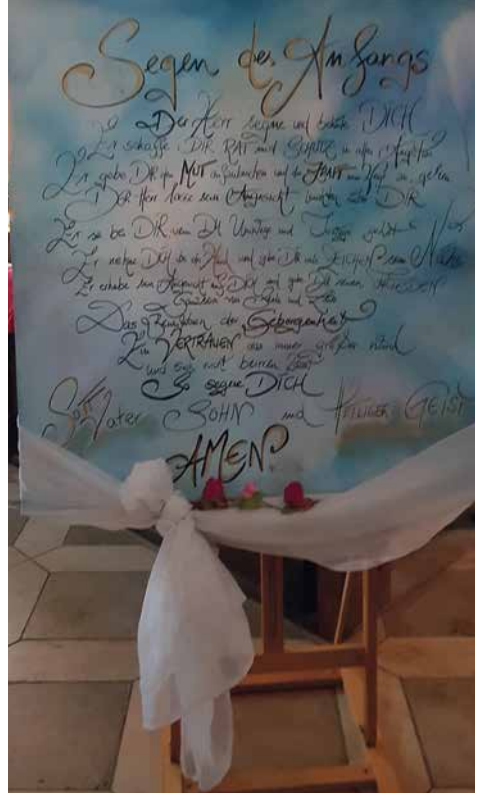 Segen des Anfangs
Der Herr segne und behüte DICH
Er schaffe DIR RAT und SCHUTZ in allen Ängsten
Er gebe DIR den MUT und die KRAFT
Der Herr lasse sein Angesicht leuchten über DIR
Er sei bei DIR wenn DU Umwege und
Er nehme DICH bei der Hand und gebe DIR ZEICHEN seiner Nähe
Er erhebe sein Angesicht auf DICH und gebe DIR seinen FRIEDEN
von und
Das der Geborgenheit
Ein VERTRAUEN das immer größer wird
und sich nicht beirren lässt
So segne DICH
Gott Vater SOHN und HEILIGER GEIST
AMEN